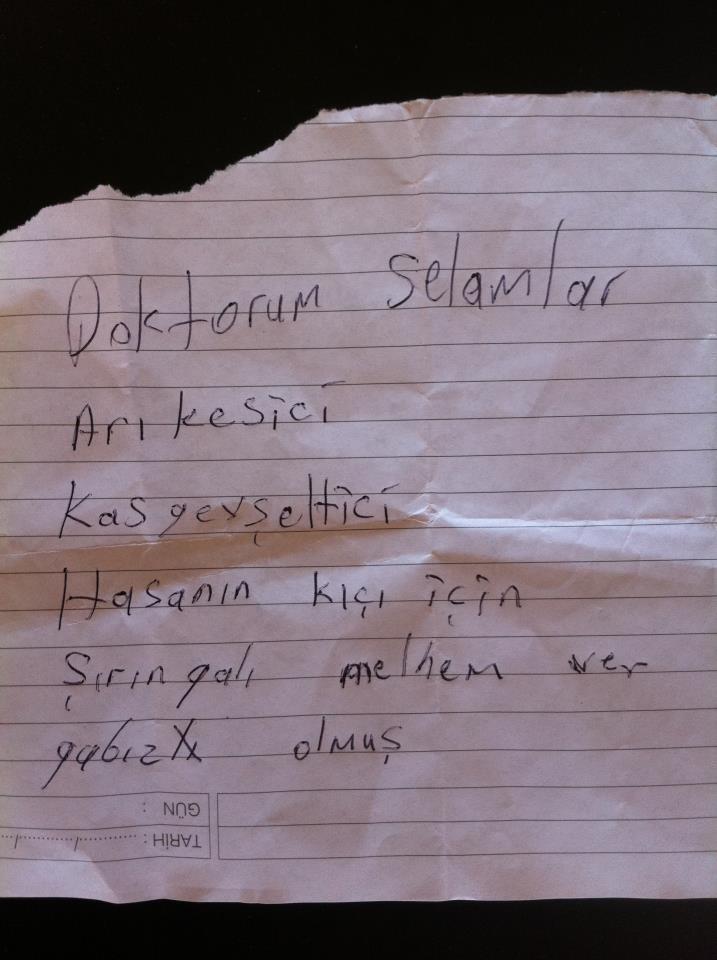 Doktorum Selamlar
Arı kesici
Kas gevşeltici
Hasanın kıçı için
Şırıngalı melhem ver
gabız olmuş
GÜN :
TARİH : ........./........./